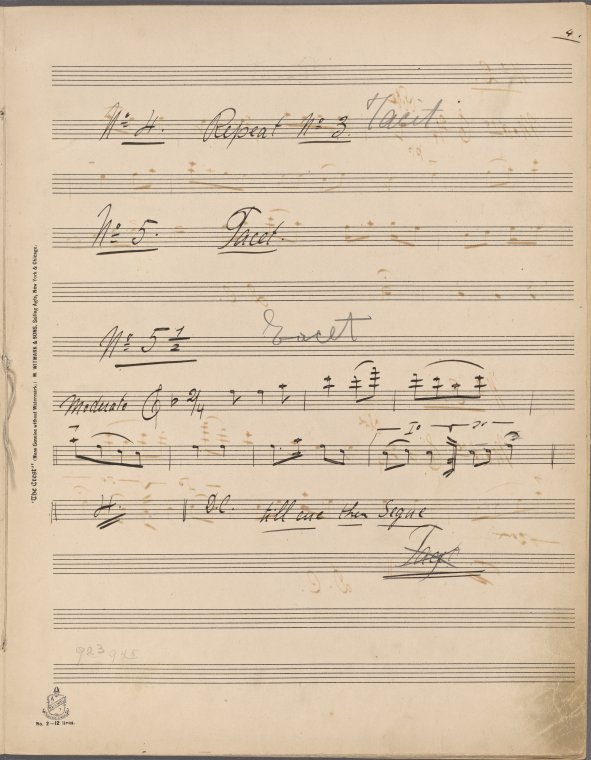 4.
No 4. Repeat No 3. Tacit.
No 5. Tacet.
No 5 1/2 Tacet
Moderato 2/4
4. D.C. till cue then Segue
923 945
"The Crest" (None Genuine without Watermark.) M. WITMARK & SONS, Selling Agts, New York & Chicago.
No. 2—12 lines.